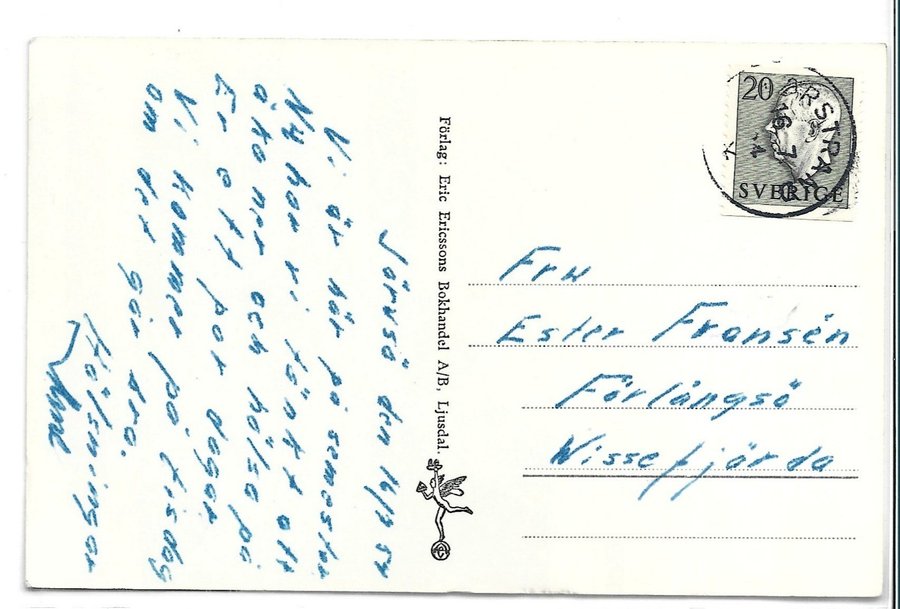 Järvsö den 16/7 54
Vi är här på semester
Ny har vi tänkt att
åka ner och hälsa på
Er ett par dagar
Vi kommer på tisdag
om det går bra.
Hälsningar
Förlag: Eric Ericssons Bokhandel A/B, Ljusdal.
20
SVERIGE
16 7
Fru
Ester Fransén
Förlångsö
Nissefjärda